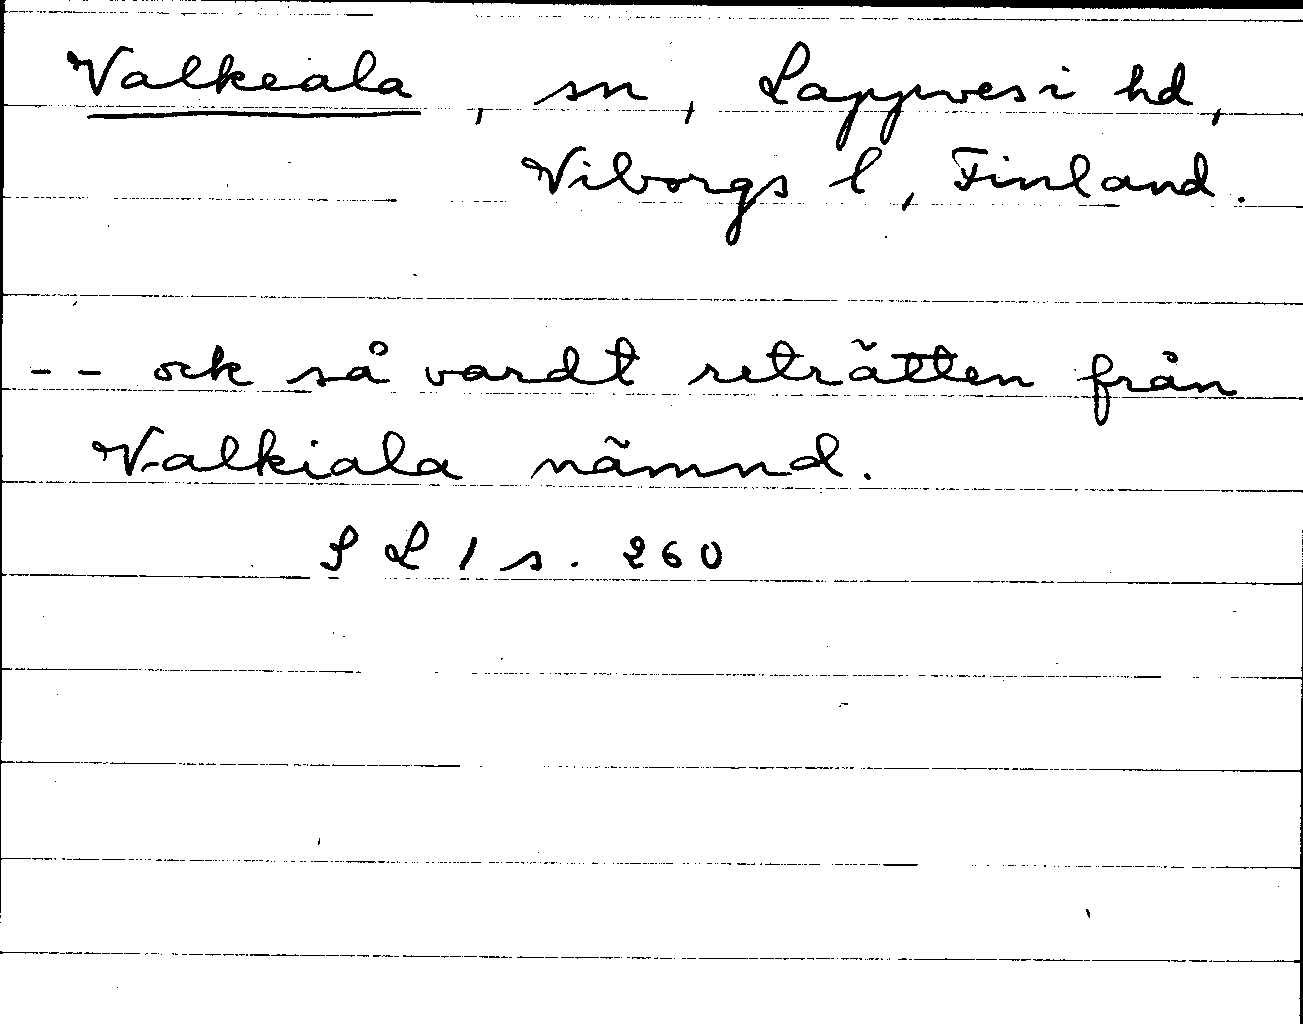 Valkeala, sn, Lappvesi hd,
Viborgs l, Finland.
-- ock så vardt reträtten från
Valkiala nämnd.
SL 1 s. 260